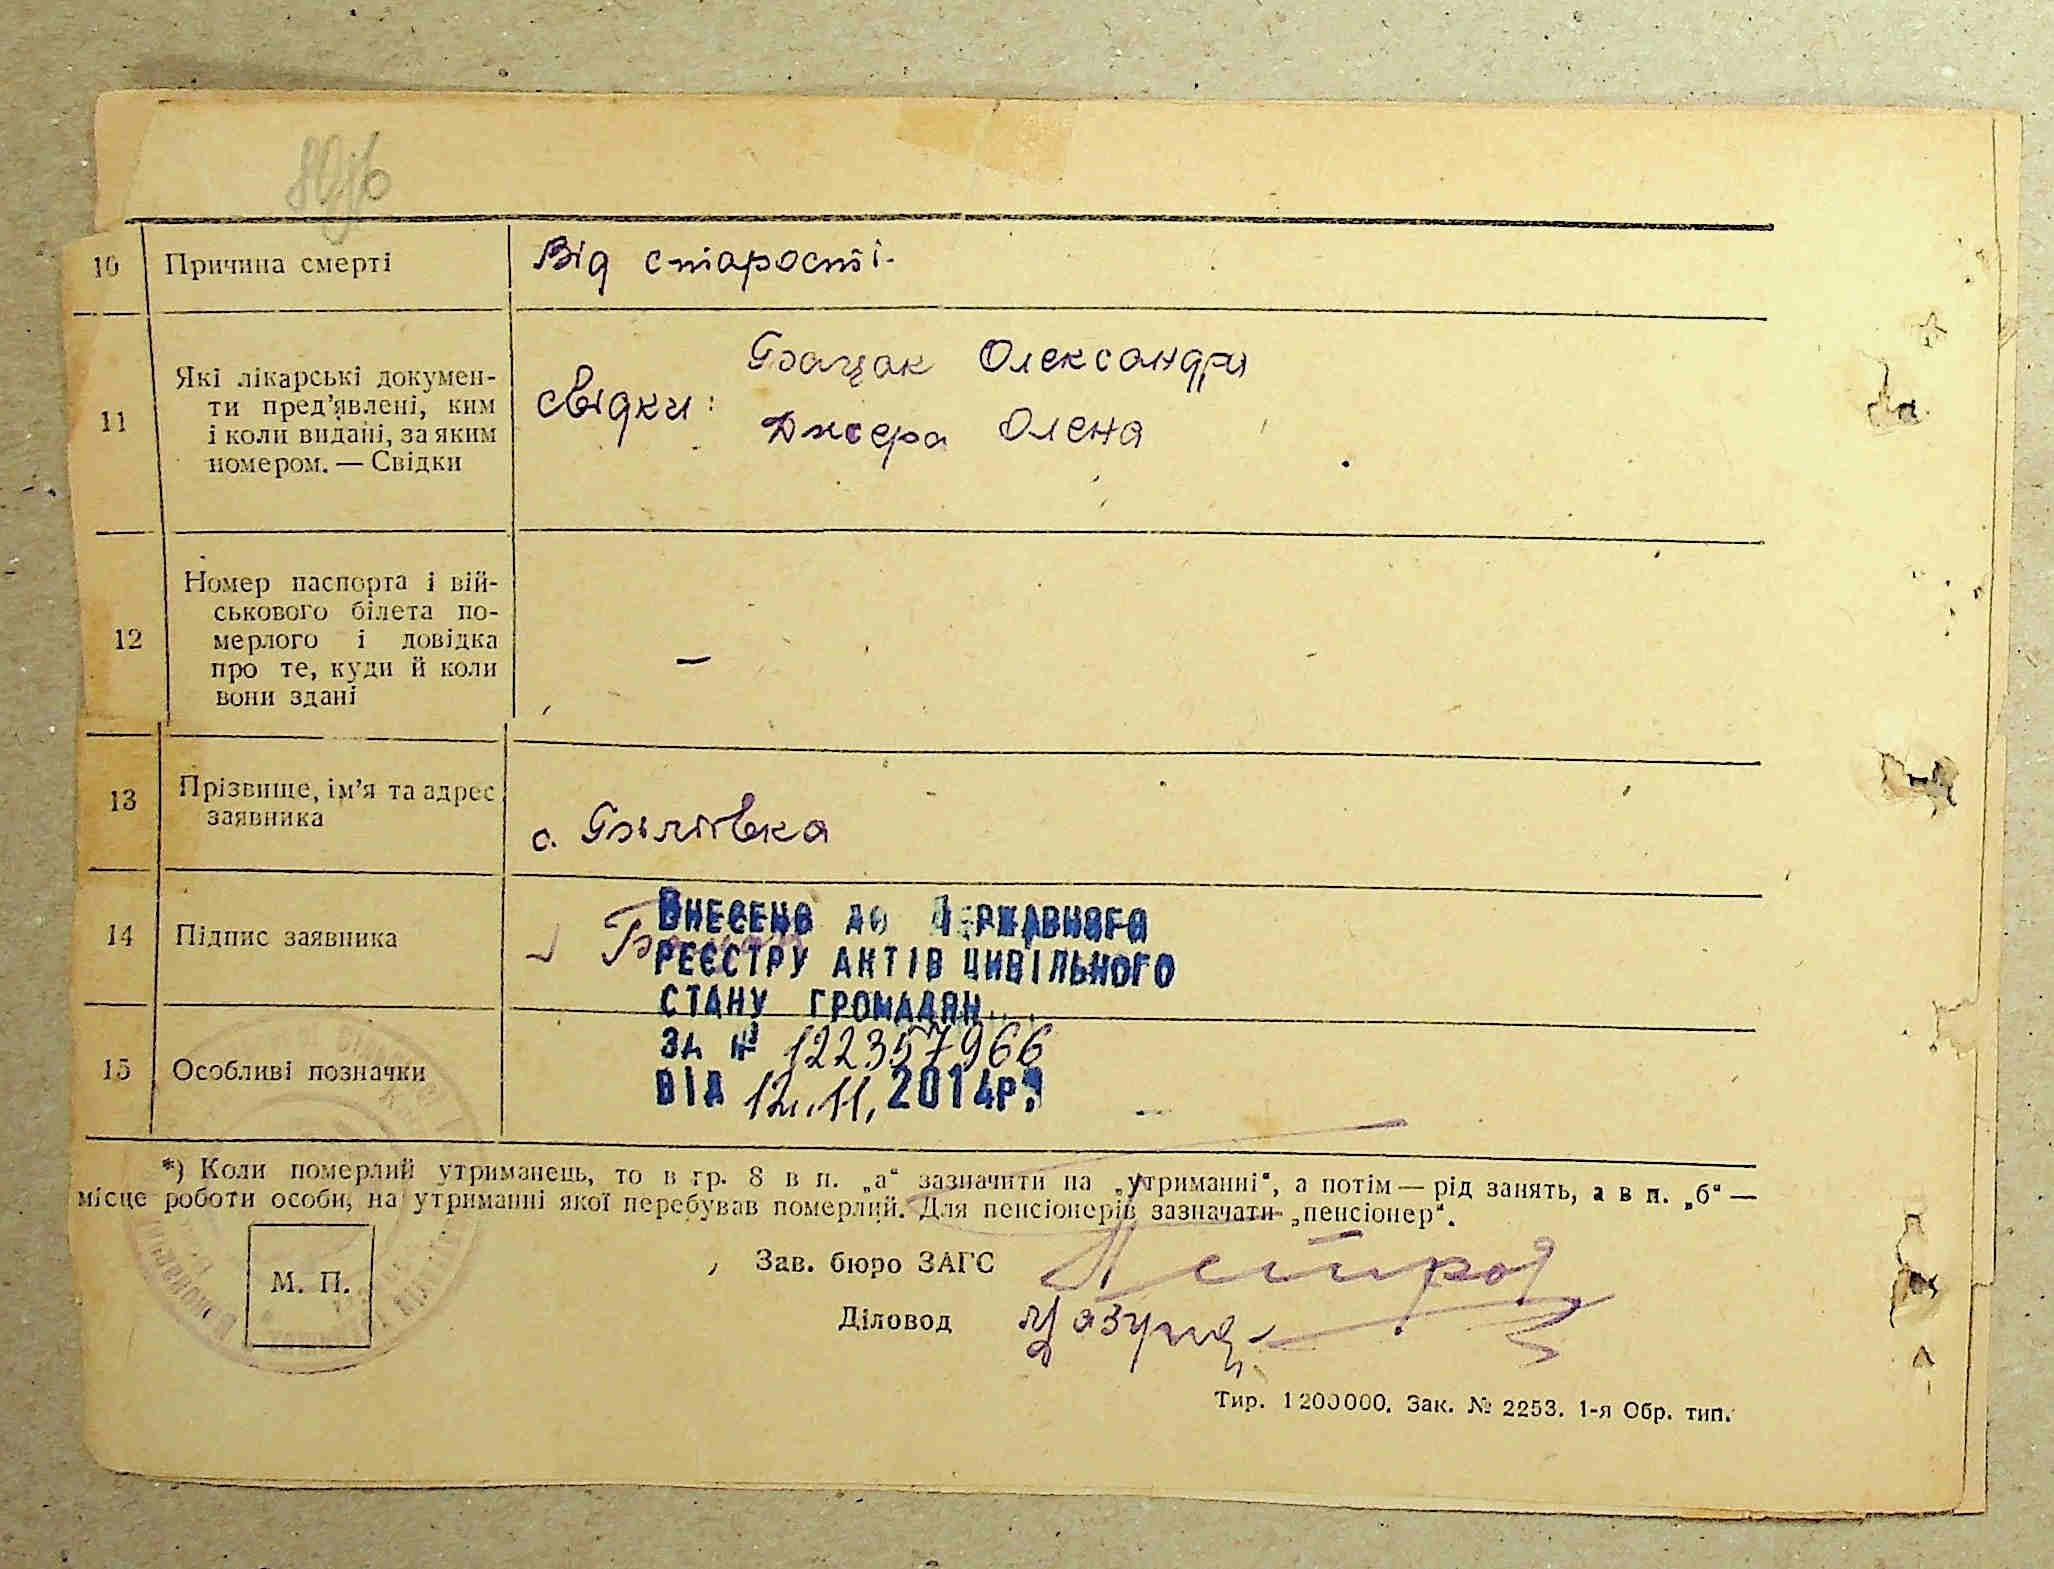 10 Причина смерті Від старості.
Які лікарські докумен-
ти пред'явлені, ким
11 і коли видані, за яким
номером. — Свідки
Олександра
свідки:
Джера Олена
Номер паспорта і вій-
ськового білета по-
12 мерлого і довідка
про те, куди й коли
вони здані
–
13 Прізвище, ім'я та адрес
заявника
с. Білівка
14 Підпис заявника
Внесено до Державного
реєстру актів цивільного
стану громадян
за № 122357966
від 12.11.2014р.
15 Особливі позначки
*) Коли померлий утриманець, то в гр. 8 в п. „а“ зазначити на „утриманні“, а потім — рід занять, а в п. „б“ —
місце роботи особи, на утриманні якої перебував померлий. Для пенсіонерів зазначати „пенсіонер“.
М. П.
Зав. бюро ЗАГС
Діловод
Тир. 1200000. Зак. № 2253. 1-я Обр. тип.